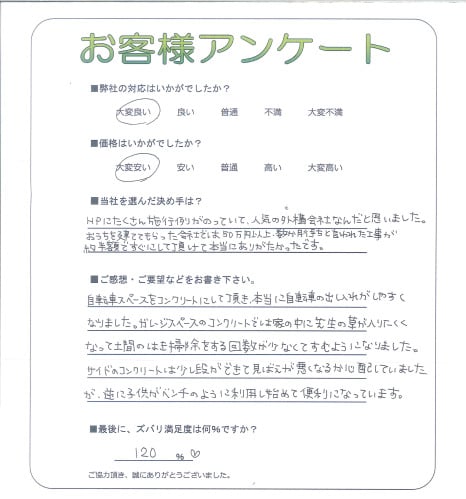 お客様アンケート
■弊社の対応はいかがでしたか？
大変良い 良い 普通 不満 大変不満
■価格はいかがでしたか？
大変安い 安い 普通 高い 大変高い
■当社を選んだ決め手は？
HPにたくさん施行例がのっていて、人気の外構会社なんだと思いました。
おうちを建ててもらった会社では50万円以上、数か月待ちと言われた工事が
約半額ですぐにして頂けて本当にありがたかったです。
■ご感想・ご要望などをお書き下さい。
自転車スペースをコンクリートにして頂き、本当に自転車の出し入れがしやすく
なりました。ガレージスペースのコンクリートでは家の中に
の草が入りにくく
なって土間のはき掃除をする回数が少なくてすむようになりました。
サイドのコンクリートは少し段ができて見ばえが悪くなるか心配していました
が、逆に子供がベンチのように利用し始めて便利になっています。
■最後に、ズバリ満足度は何%ですか？
120 %♡
ご協力頂き、誠にありがとうございました。